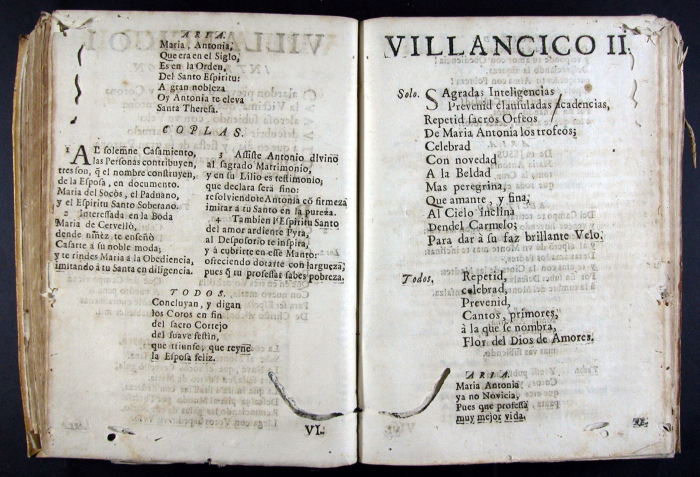 ARIA.
Maria, Antonia,
Que era en el Siglo,
Es en la Orden,
Del Santo Espiritu:
A gran nobleza
Oy Antonia te eleva
Santa Theresa.
COPLAS.
1 AL solemne Casamiento,
las Personas contribuyen,
tres son, q̃ el nombre construyen,
de la Esposa, en documento.
Maria del Socòs, el Paduano,
y el Espiritu Santo Soberano.
2 Interessada en la Boda
Maria de Cervellò,
dende niñez te enseñò
Casarte a su noble moda;
y te rindes Maria a la Obediencia,
imitando á tu Santa en diligencia.
3 Assiste Antonio divino
al sagrado Matrimonio,
y en su Lilio es testimonio,
que declara serà sino:
resolviendote Antonia cõ firmeza
imitar a tu Santo en la pureza.
4 Tambien l'Espiritu Santo
del amor ardiente Pyra,
al Desposorio te inspira,
y à cubrirte en esse Manto:
ofreciendo dorarte con largueza;
pues q̃ui professar sabes pobreza.
TODOS.
Concluyan, y digan
los Coros en fin
del sacro Cortejo
del suave festin,
que triunfe, que reyne
la Esposa feliz.
VI.
VILLANCICO II.
Solo. SAgradas Inteligencias
Prevenid clausuladas Acadencias,
Repetid sacros Orfeos
De Maria Antonia los trofeos;
Celebrad
Con novedad
A la Beldad
Mas peregrina,
Que amante, y fina,
Al Cielo inclina
Dendel Carmelo;
Para dar à su faz brillante Velo.
Todos. Repetid,
celebrad,
Prevenid,
Cantos, primores,
à la que se nombra,
Flor del Dios de Amores.
ARIA.
Maria Antonia
ya no Novicia,
Pues que professa
muy mejor vida.